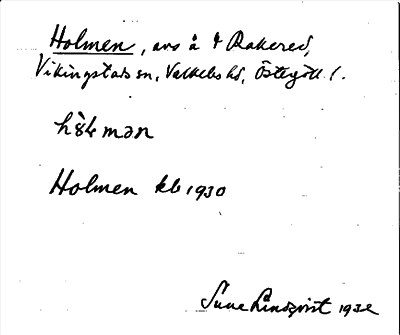 Holmen, avs å t Rakered,
Vikingstads sn, Valkebo hd, Östergötl. l.
Holmen kb 1930
Sune Lindqvist 1932